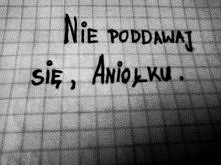 Nie poddawaj
się, Aniołku.